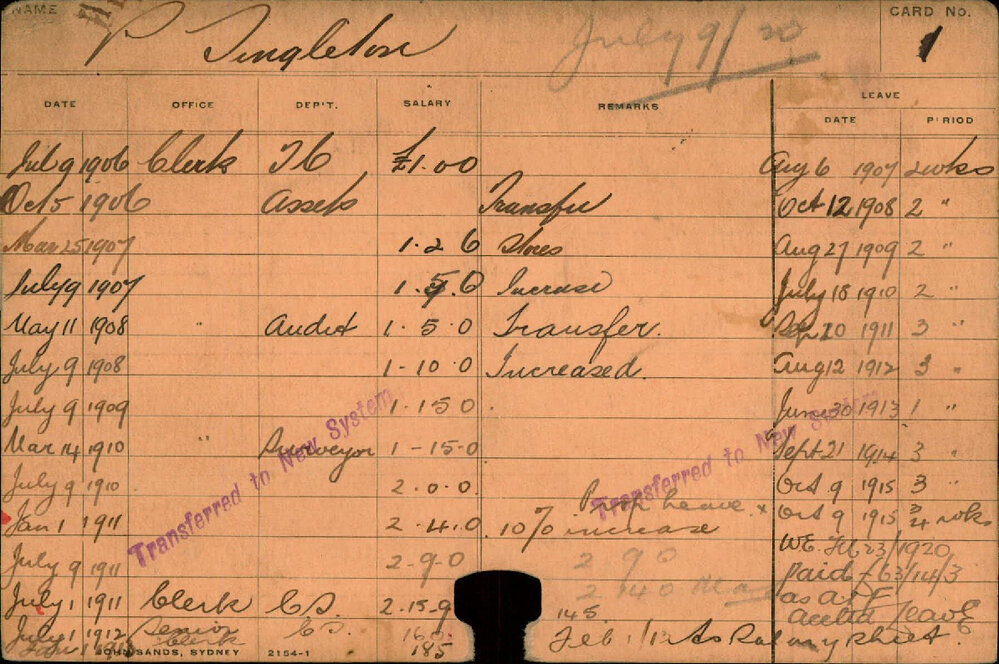 NAME P Singleton July 9/20 CARD No. 1
DATE OFFICE DEP'T. SALARY REMARKS LEAVE
DATE PERIOD
July 9 1906 Clerk TC £1.00 Aug 6 1907 2 wks
Oct 5 1906 Assets Transfer Oct 12 1908 2 "
Mar 25 1907 1.2 6 Stores Aug 27 1909 2 "
July 9 1907 1.5.0 Increase July 18 1910 2 "
May 11 1908 " Audit 1.5.0 Transfer. Sep 20 1911 3 "
July 9 1908 1-10.0 Increased. Aug 12 1912 3 "
July 9 1909 1.15 0 June 30 1913 1 "
Mar 14 1910 " Surveyor 1-15.0 Sept 21 1914 3 "
July 9 1910 2.0.0 Oct 9 1915 3 "
Transferred to New System
Transferred to New System
Leave x
Jan 1 1911 2.4.0 10% increase Oct 9 1915 3/4 wks
July 9 1911 2-9-0 2 9 0 W.E. 23/1920
2 14 0 paid £63/14/3
July 1 1911 Clerk C.S. 2-15-9 145 as a/c Leave
July 1 1912 Senior Clerk C.S. 160 Feb 1/13 As Salary
Jan 1 185
SANDS, SYDNEY 2154-1